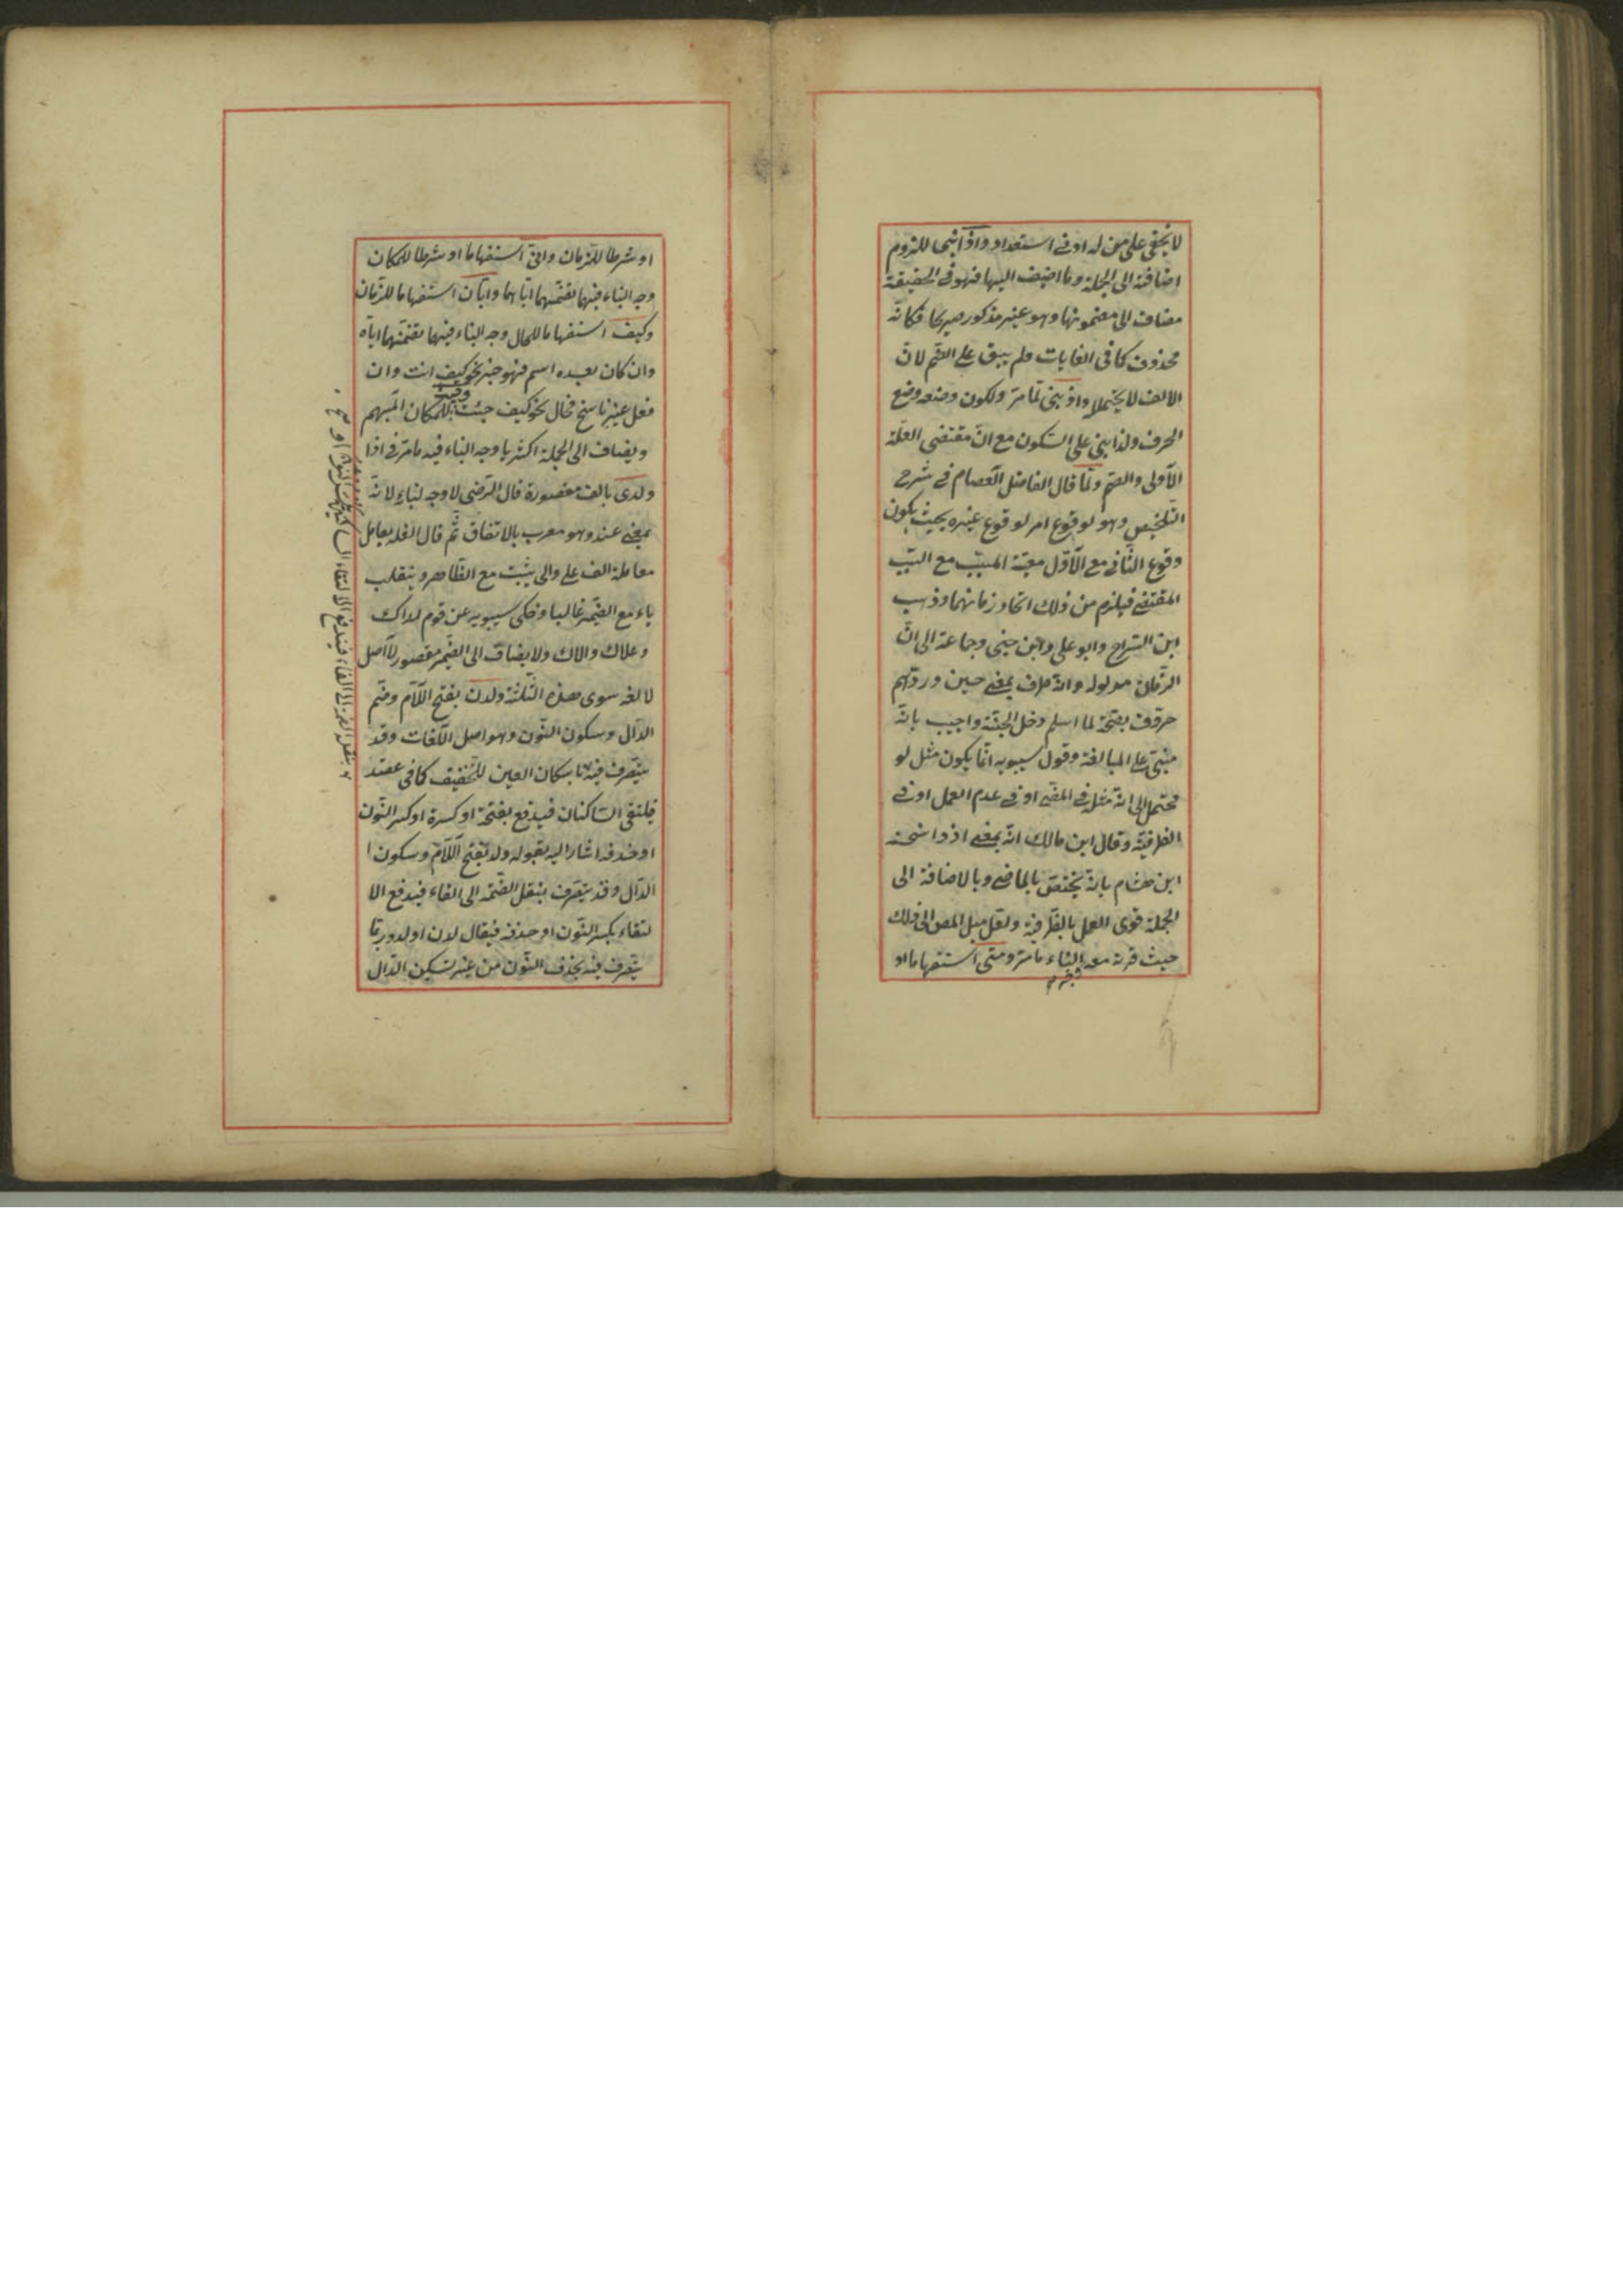 لا يخفى على من له ادنى استعداد واذا بنيا للزوم
اضافته الى الجملة وما اضيف اليها فهو في الحقيقة
مضاف الى مضمونها وهو غير مذكور صريحا فكانه
محذوف كما في الغايات ولم يبق على الضم لان
الالف لا يحتملا واذ بني لما مر ولكون وضعه وضع
الحرف ولذا بني على السكون مع ان مقتضى العلة
الاولى والضم ولما قال الفاضل العصام في شرح
التلخيص وهو لوقوع امر لوقوع غيره بحيث يكون
وقوع الثاني مع الاول معية المسبب مع السبب
المقتضي فيلزم من ذلك اتحاد زمانهما وذهب
ابن السراج وابو على وابن جنى وجماعة الى ان
الزمان مدلوله وانه ظرف بمعنى حين وردهم
خروف بصحة لما اسلم دخل الجنة واجيب بانه
مبني على المبالغة وقول سيبويه انما يكون مثل لو
محتمل الى انه مثل في المضي او في عدم العمل او في
الظرفية وقال ابن مالك انه بمعنى اذ واستحسنه
ابن هشام بانه يختص بالماضي وبالاضافة الى
الجملة قوى العمل بالظرفية ولعل ميل المص الى ذلك
حيث قرنه معه البناء ما مر ومتى استفهاما او
او شرطا للزمان واين استفهاما او شرطا للمكان
وجه البناء فيهما تضمنهما اياهما وايان استفهاما للزمان
وكيف استفهاما للحال وجه البناء فيهما تضمنهما اياه
وان كان بعده اسم فهو خبر نحو كيف انت وان
فعل غير ناسخ فحال نحو كيف جئت وحيث للمكان المبهم
ويضاف الى الجملة اكثريا وجه البناء فيه ما مر في اذا
ولدى بالف مقصورة قال الرضى لا وجه لبناءه لانه
بمعنى عند وهو معرب بالاتفاق ثم قال الفه يعامل
معاملة الف على والى يثبت مع الظاهر وينقلب
ياء مع الضمير غالبا وحكى سيبويه عن قوم لداك
وعلاك والاك ولا يضاف الى الضمير مقصور لا اصل
لالفه سوى هذه الثلثة ولدن بفتح اللام وضم
الدال وسكون النون وهو اصل اللغات وقد
يتصرف فيه باسكان العين للتخفيف كما في عضد
فيلتقى الساكنان فيدفع بفتحة او كسرة او كسر النون
او حذفه اشار اليه بقوله ولد بفتح اللام وسكون ا
الدال وقد يتصرف بنقل الضمة الى الفاء فيدفع الا
لتقاء بكسر النون او حذفه فيقال لدن او لد وربما
يتصرف فيه بحذف النون من غير تسكين الدال
بنقل الضمة الى الفاء فيندفع الالتقاء الساكنين بكسر النون او